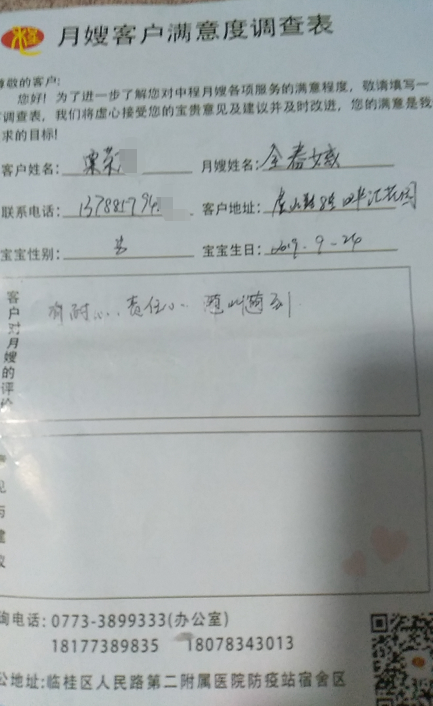 月嫂客户满意度调查表
尊敬的客户:
您好！为了进一步了解您对中程月嫂各项服务的满意程度，敬请填写一
调查表，我们将虚心接受您的宝贵意见及建议并及时改进，您的满意是我
求的目标!
客户姓名: 月嫂姓名: 全春娥
联系电话: 客户地址:
宝宝性别: 宝宝生日: 2019.9-24
客户对月嫂的评价
有耐心、责任心 随叫随到
见与建议
询电话: 0773-3899333(办公室)
18177389835 18078343013
公地址: 临桂区人民路第二附属医院防疫站宿舍区